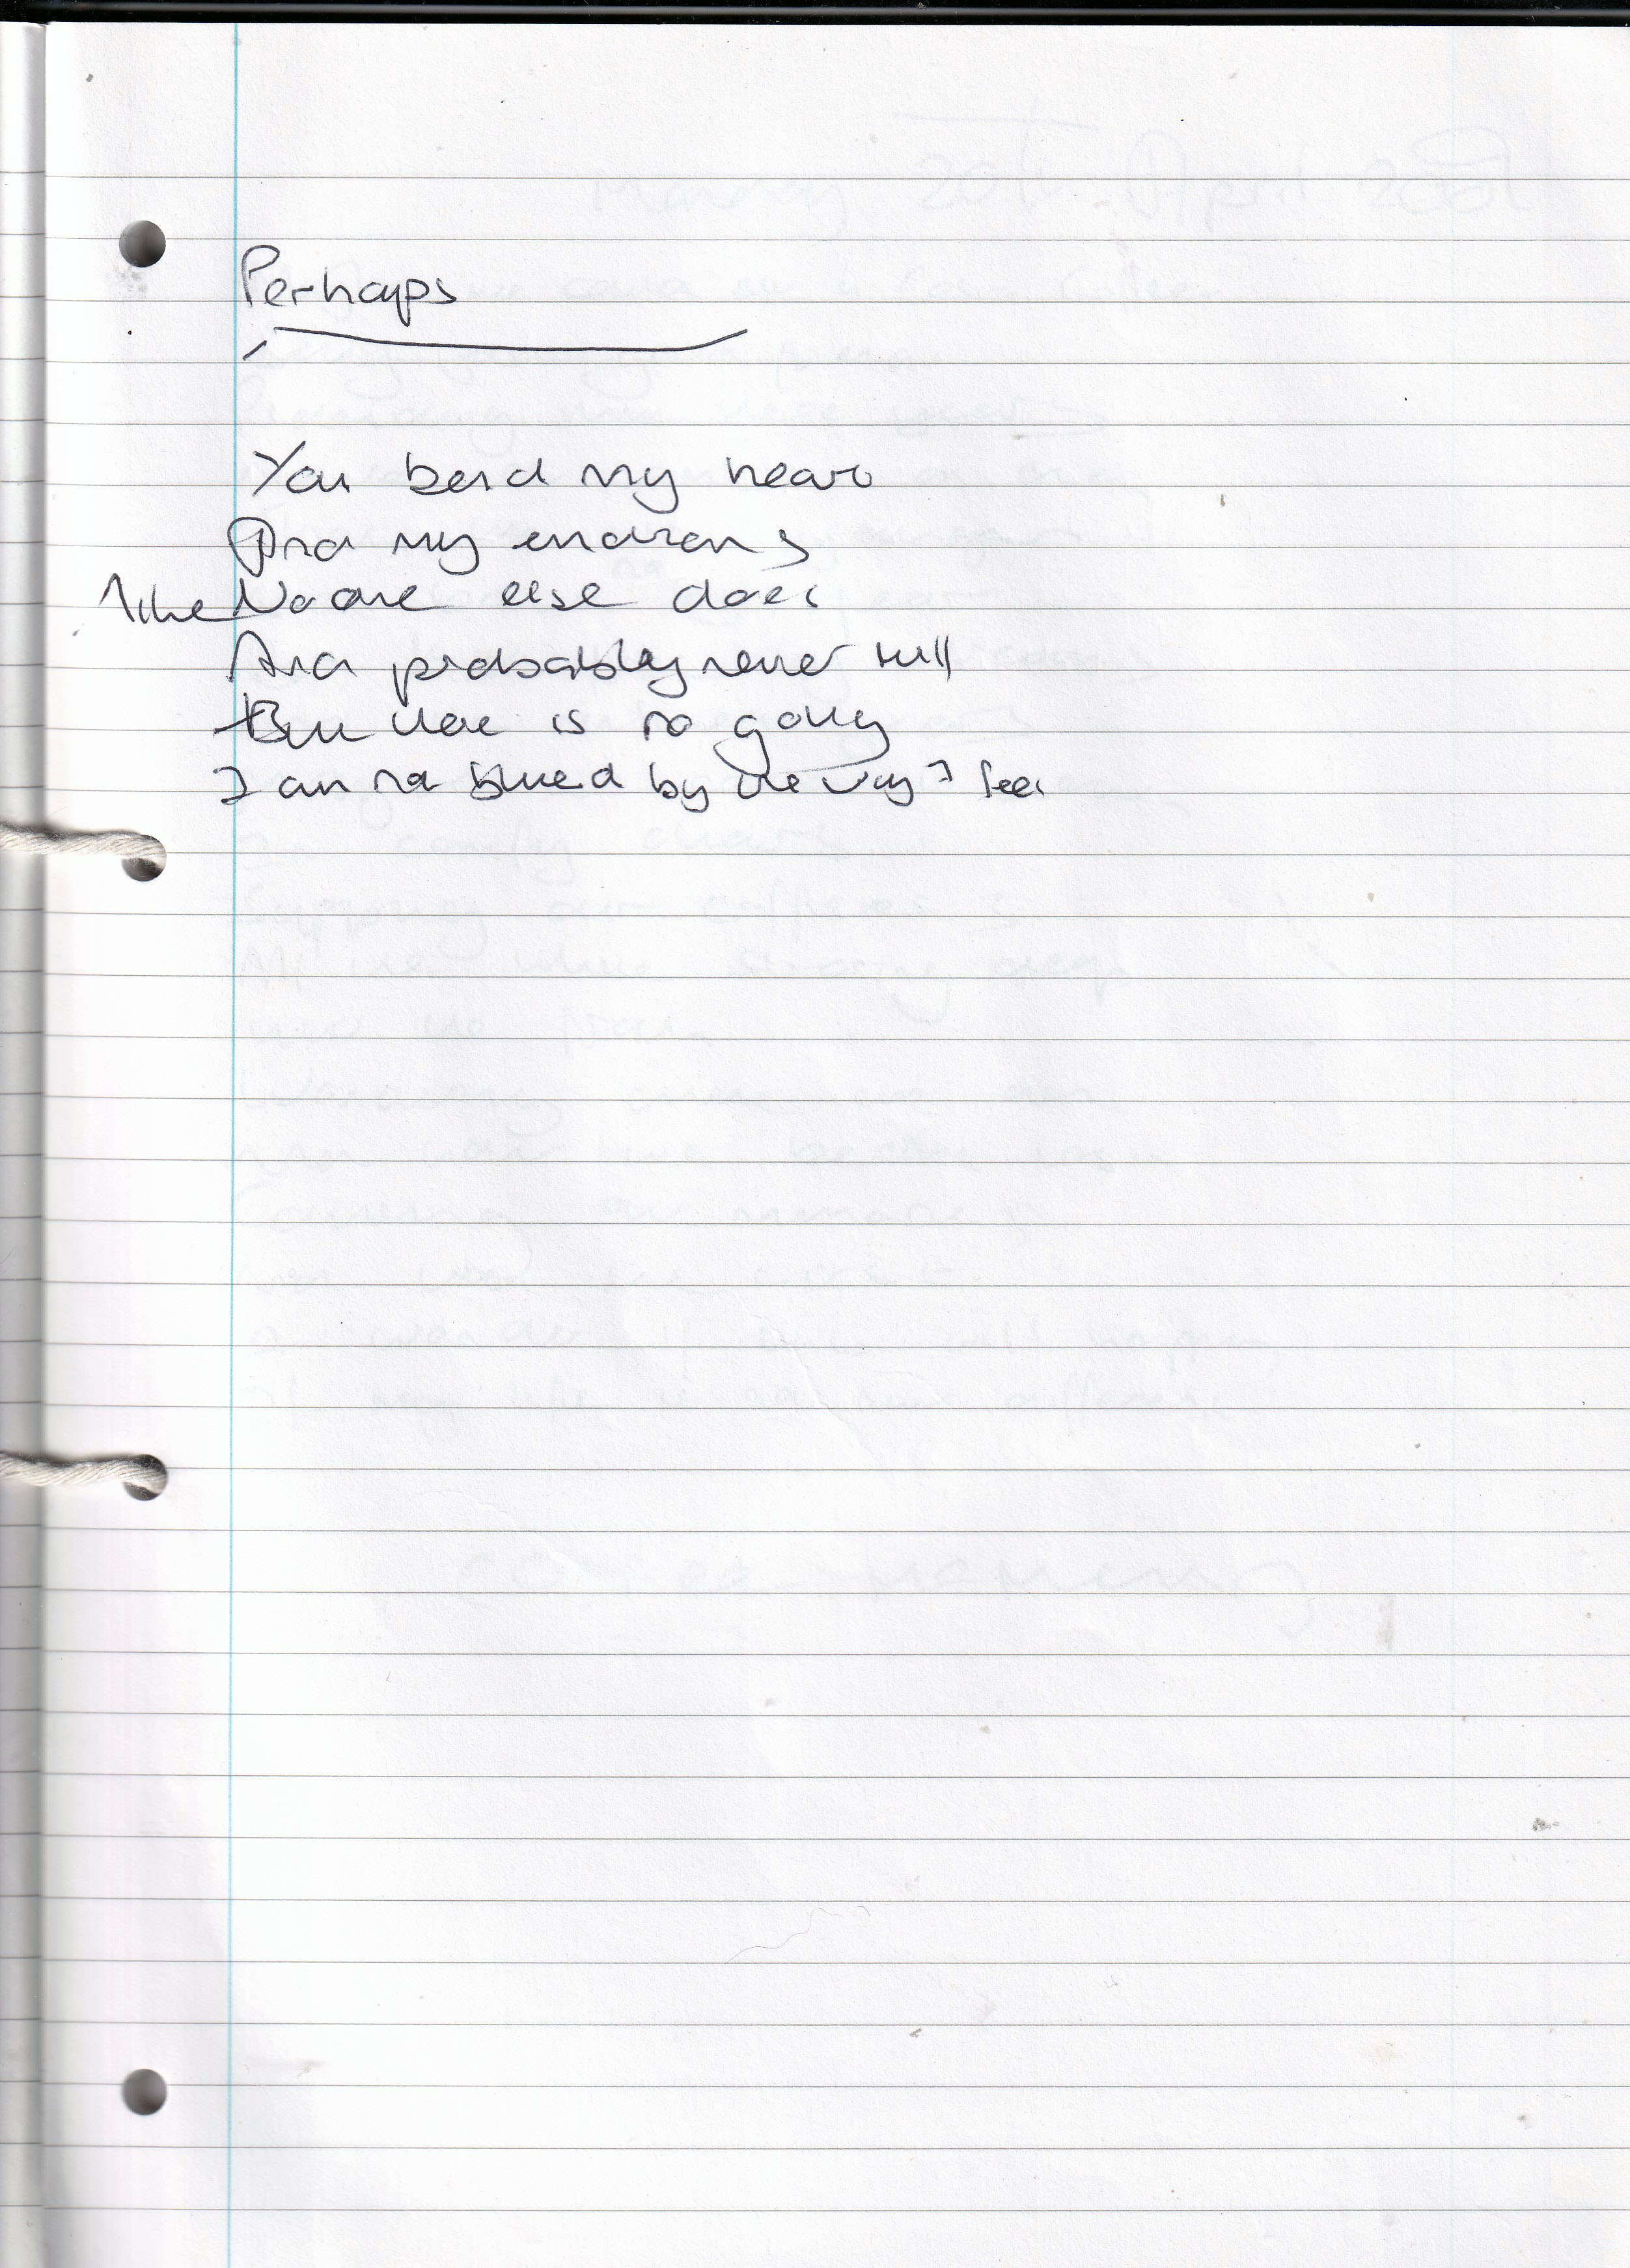 Perhaps
You bend my heart
And my emotions
like No one else does
And probably never will
But there is no going
I am not blinded by the way I feel